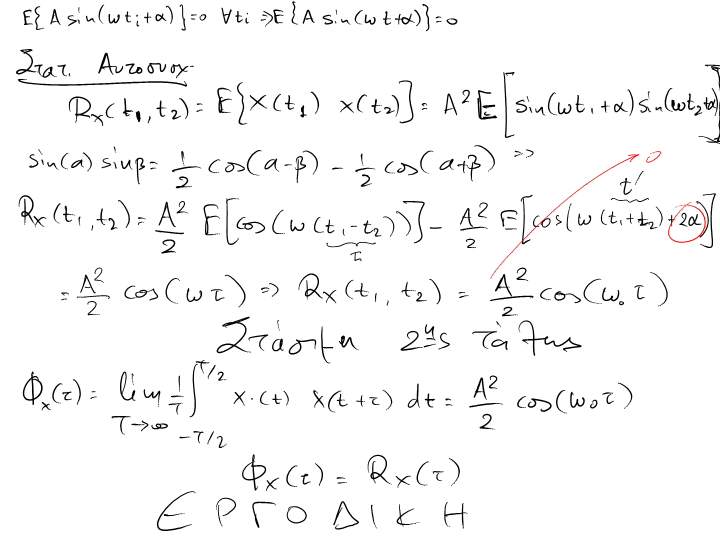 E{A sin(ωti+α)}=0 ∀ti ⇒E{A sin(ωt+α)}=0
Στατ. Αυτοσυσχ.
Rx(t1,t2)=E{X(t1) x(t2)}=A²E[sin(ωt1+α)sin(ωt2+α)]
sin(a) sinβ=1/2 cos(a-β) - 1/2 cos(a+β) ⇒ 0
t'
Rx(t1,t2)=A²/2 E[cos(ω(t1-t2))] - A²/2 E[cos(ω(t1+t2)+2α)]
τ
=A²/2 cos(ωτ) ⇒ Rx(t1,t2)=A²/2 cos(ω0τ)
Στάσιμη 2ης τάξης
Φx(τ)=lim T→∞ 1/T ∫_{-T/2}^{T/2} x(t) x(t+τ) dt=A²/2 cos(ω0τ)
Φx(τ)=Rx(τ)
ΕΡΓΟΔΙΚΗ